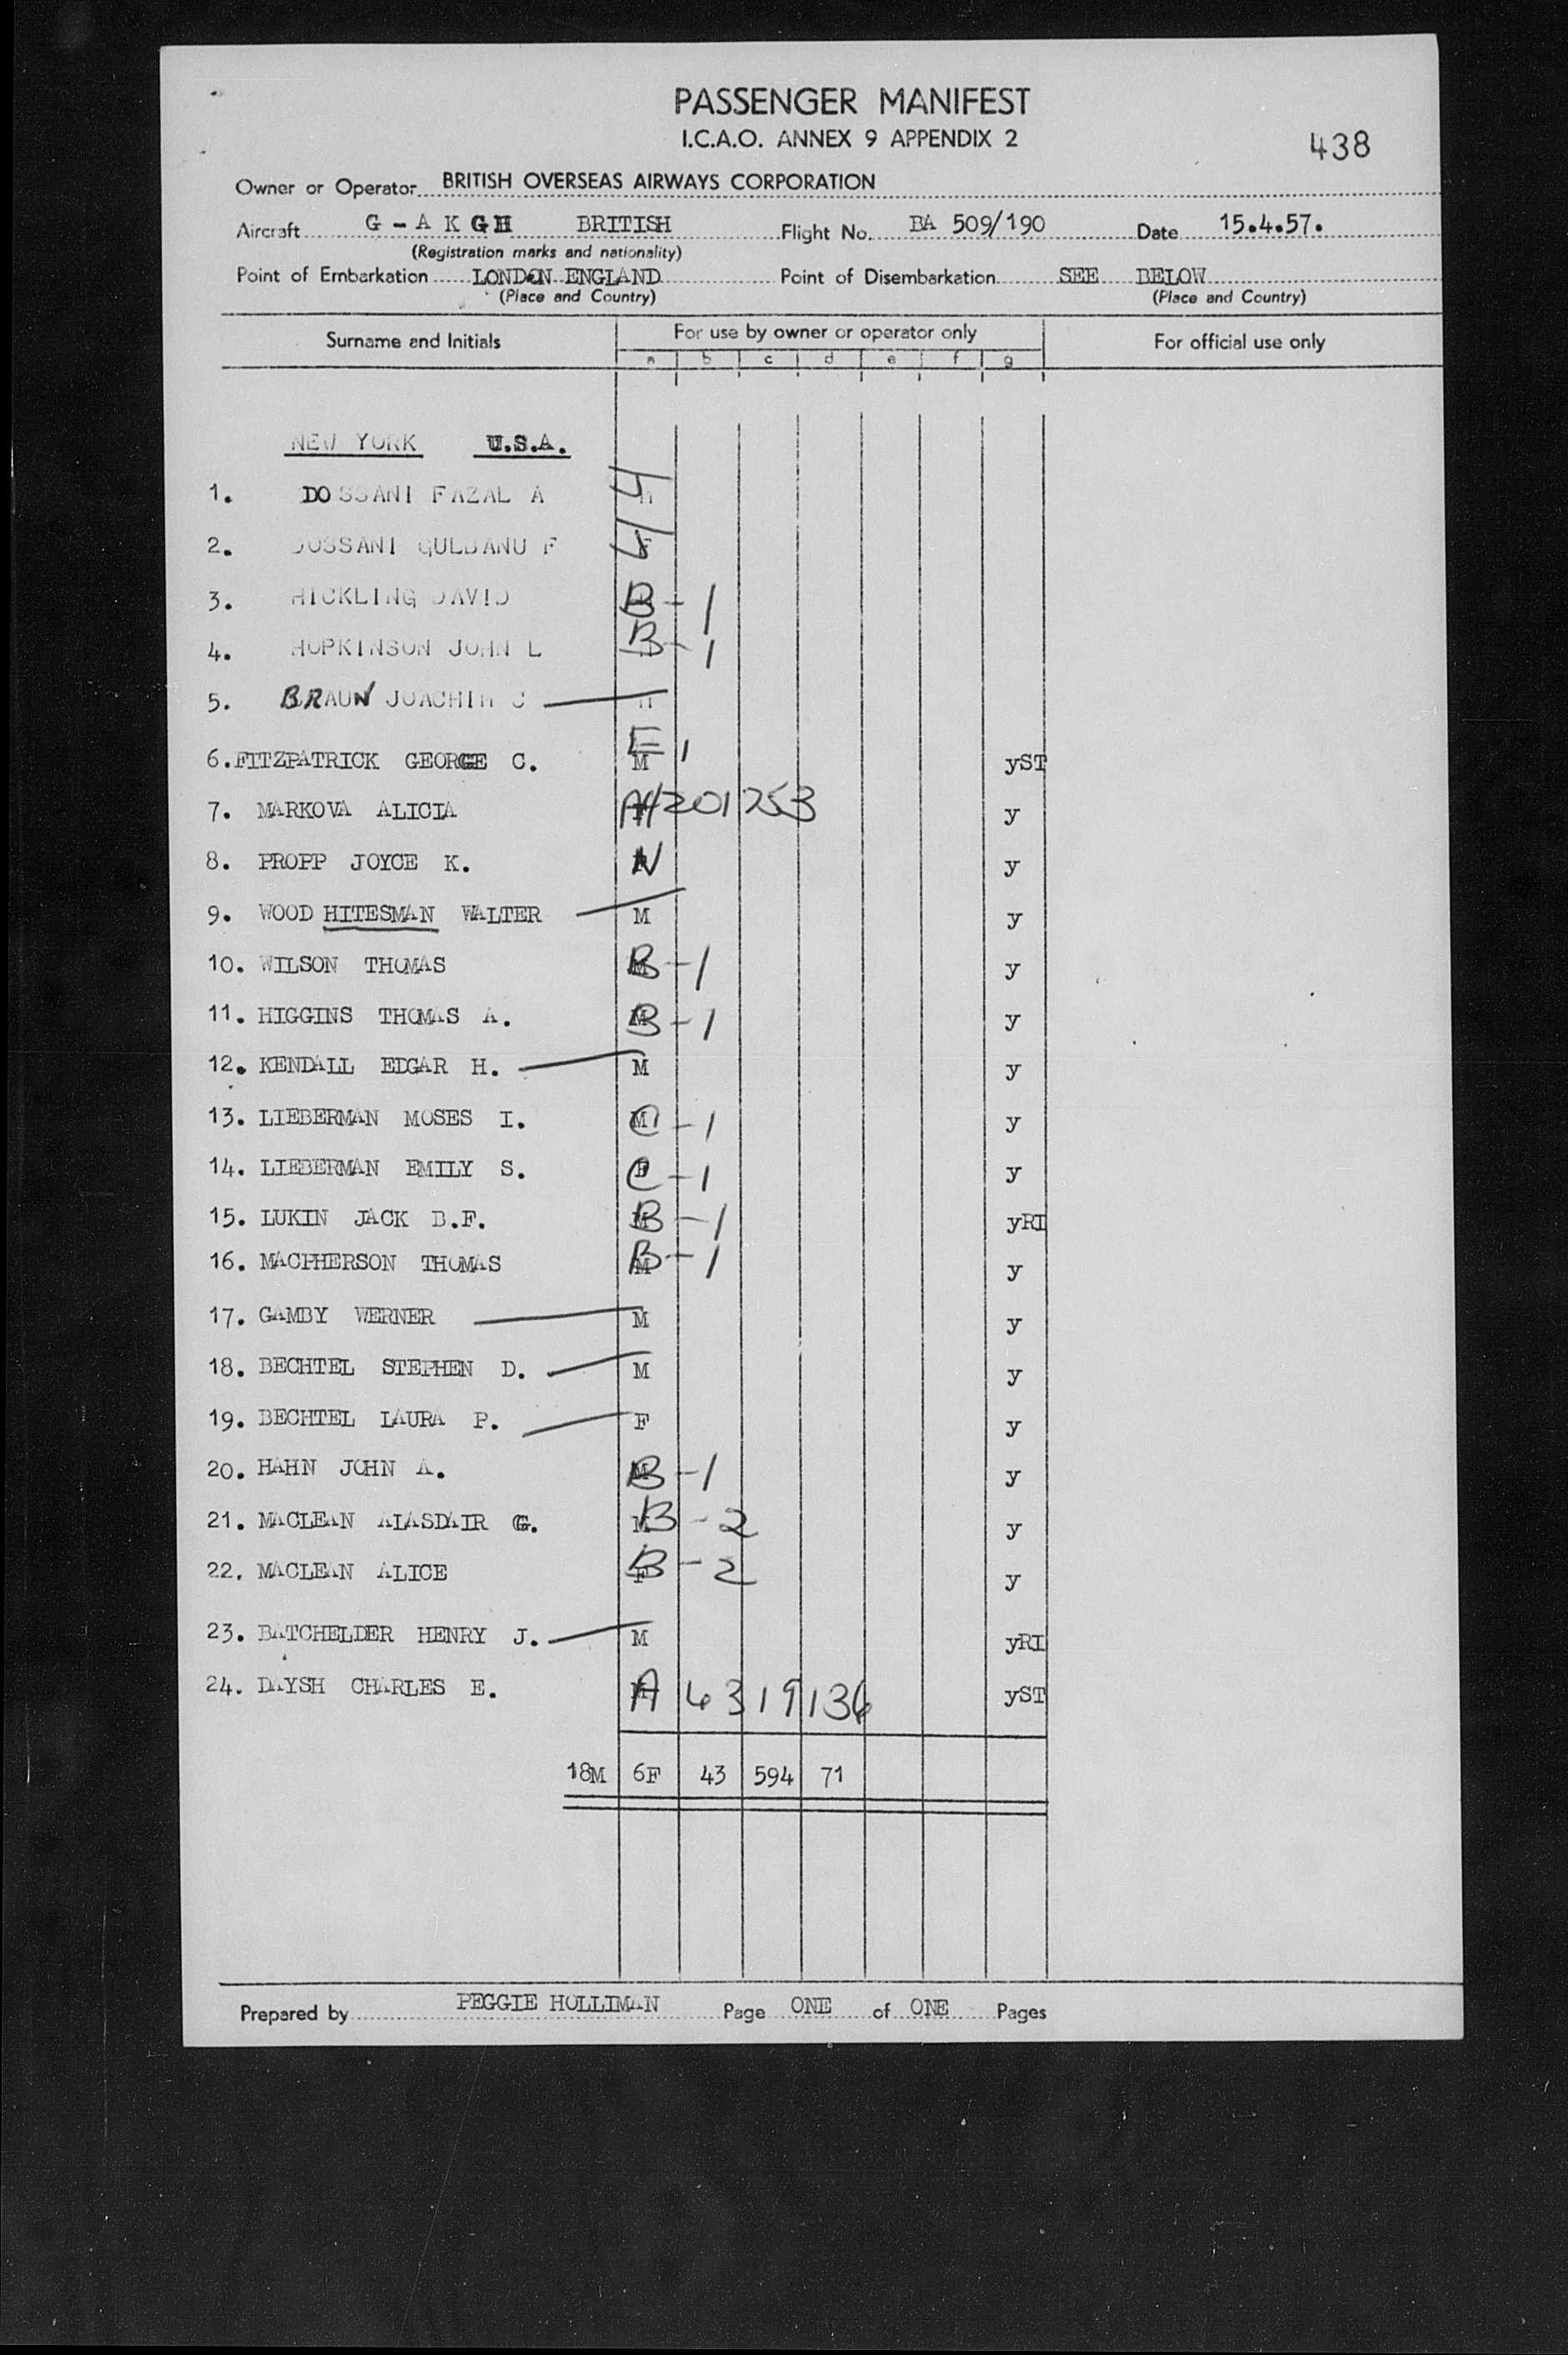 PASSENGER MANIFEST
I.C.A.O. ANNEX 9 APPENDIX 2
438
Owner or Operator BRITISH OVERSEAS AIRWAYS CORPORATION
Aircraft G - A K GH BRITISH Flight No. BA 509/190 Date 15.4.57.
(Registration marks and nationality)
Point of Embarkation LONDON ENGLAND Point of Disembarkation SEE BELOW
(Place and Country) (Place and Country)
Surname and Initials For use by owner or operator only For official use only
a b c d e f g
NEW YORK U.S.A.
1. DOSSANI FAZAL A 4
2. DOSSANI GULBANU F 4
3. HICKLING DAVID B-1
4. HOPKINSON JOHN L B-1
5. BRAUN JOACHIM C M
6. FITZPATRICK GEORGE C. E 1 M yST
7. MARKOVA ALICIA AH201253 y
8. PROPP JOYCE K. N y
9. WOOD HITESMAN WALTER M y
10. WILSON THOMAS B-1 y
11. HIGGINS THOMAS A. B-1 y
12. KENDALL EDGAR H. M y
13. LIEBERMAN MOSES I. M C-1 y
14. LIEBERMAN EMILY S. F C-1 y
15. LUKIN JACK B.F. M B-1 yRI
16. MACPHERSON THOMAS M B-1 y
17. GAMBY WERNER M y
18. BECHTEL STEPHEN D. M y
19. BECHTEL LAURA P. F y
20. HAHN JOHN A. M B-1 y
21. MACLEAN ALASDAIR G. M B-2 y
22. MACLEAN ALICE F B-2 y
23. BATCHELDER HENRY J. M yRI
24. DAYSH CHARLES E. M A 4319136 yST
18M 6F 43 594 71
Prepared by PEGGIE HOLLIMAN Page ONE of ONE Pages